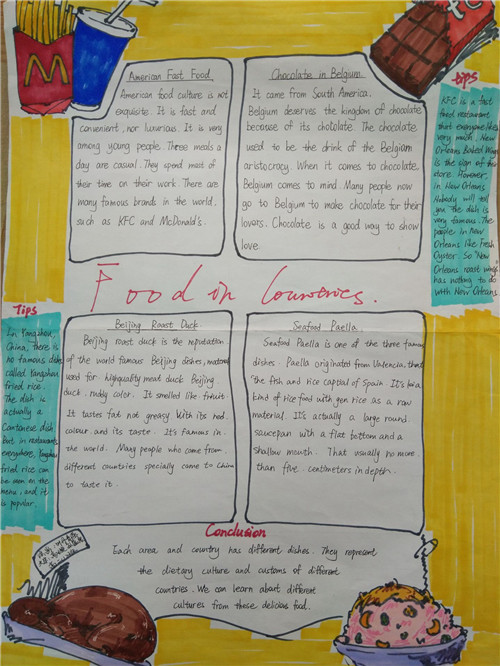 American Fast Food
American food culture is not
exquisite. It is fast and
convenient, nor luxurious. It is very
among young people. Three meals a
day are casual. They spend most of
their time on their work. There are
many famous brands in the world,
such as KFC and McDonald's.
Chocolate in Belgium
It came from South America.
Belgium deserves the kingdom of chocolate
because of its chotolate. The chocolate
used to be the drink of the Belgian
aristocracy. When it comes to chocolate,
Belgium comes to mind. Many people now
go to Belgium to make chocolate for their
lovers. Chocolate is a good way to show
love.
tips
KFC is a fast
food restaurant
that everyone likes
very much. New
Orleans Baked Wings
is the sign of the
store. However,
in New Orleans
Nobody will tell
you the dish is
very famous. The
people in New
Orleans like Fresh
Oyster. So New
Orleans roast wings
has nothing to do
with New Orleans
Food in Countries.
Tips
In Yangzhou,
China, there is
no famous dish
called Yangzhou
fried rice.
The dish is
actually a
Cantonese dish
But in restaurants
everywhere, Yangzhou
fried rice can
be seen on the
menu, and it
is popular.
Beijing Roast Duck.
Beijing roast duck is the reputation
of the world famous Beijing dishes,
used for highquality meat duck Beijing
duck, ruddy color. It smelled like fruit.
It tastes fat not greasy. With its red
colour and its taste. It's famous in
the world. Many people who come from
different countries specially came to China
to taste it.
Seafood Paella.
Seafood Paella is one of the three famous
dishes. Paella originated from Valencia, that
the fish and rice captial of Spain. It's
kind of rice food with gen rice as a raw
material. It's actually a large round
saucepan with a flat bottom and a
shallow mouth. That usually no more
than five centimeters in depth.
Conclusion
Each area and country has different dishes. They represent
the dietary culture and customs of different
countries. We can learn about different
cultures from these delicious food.